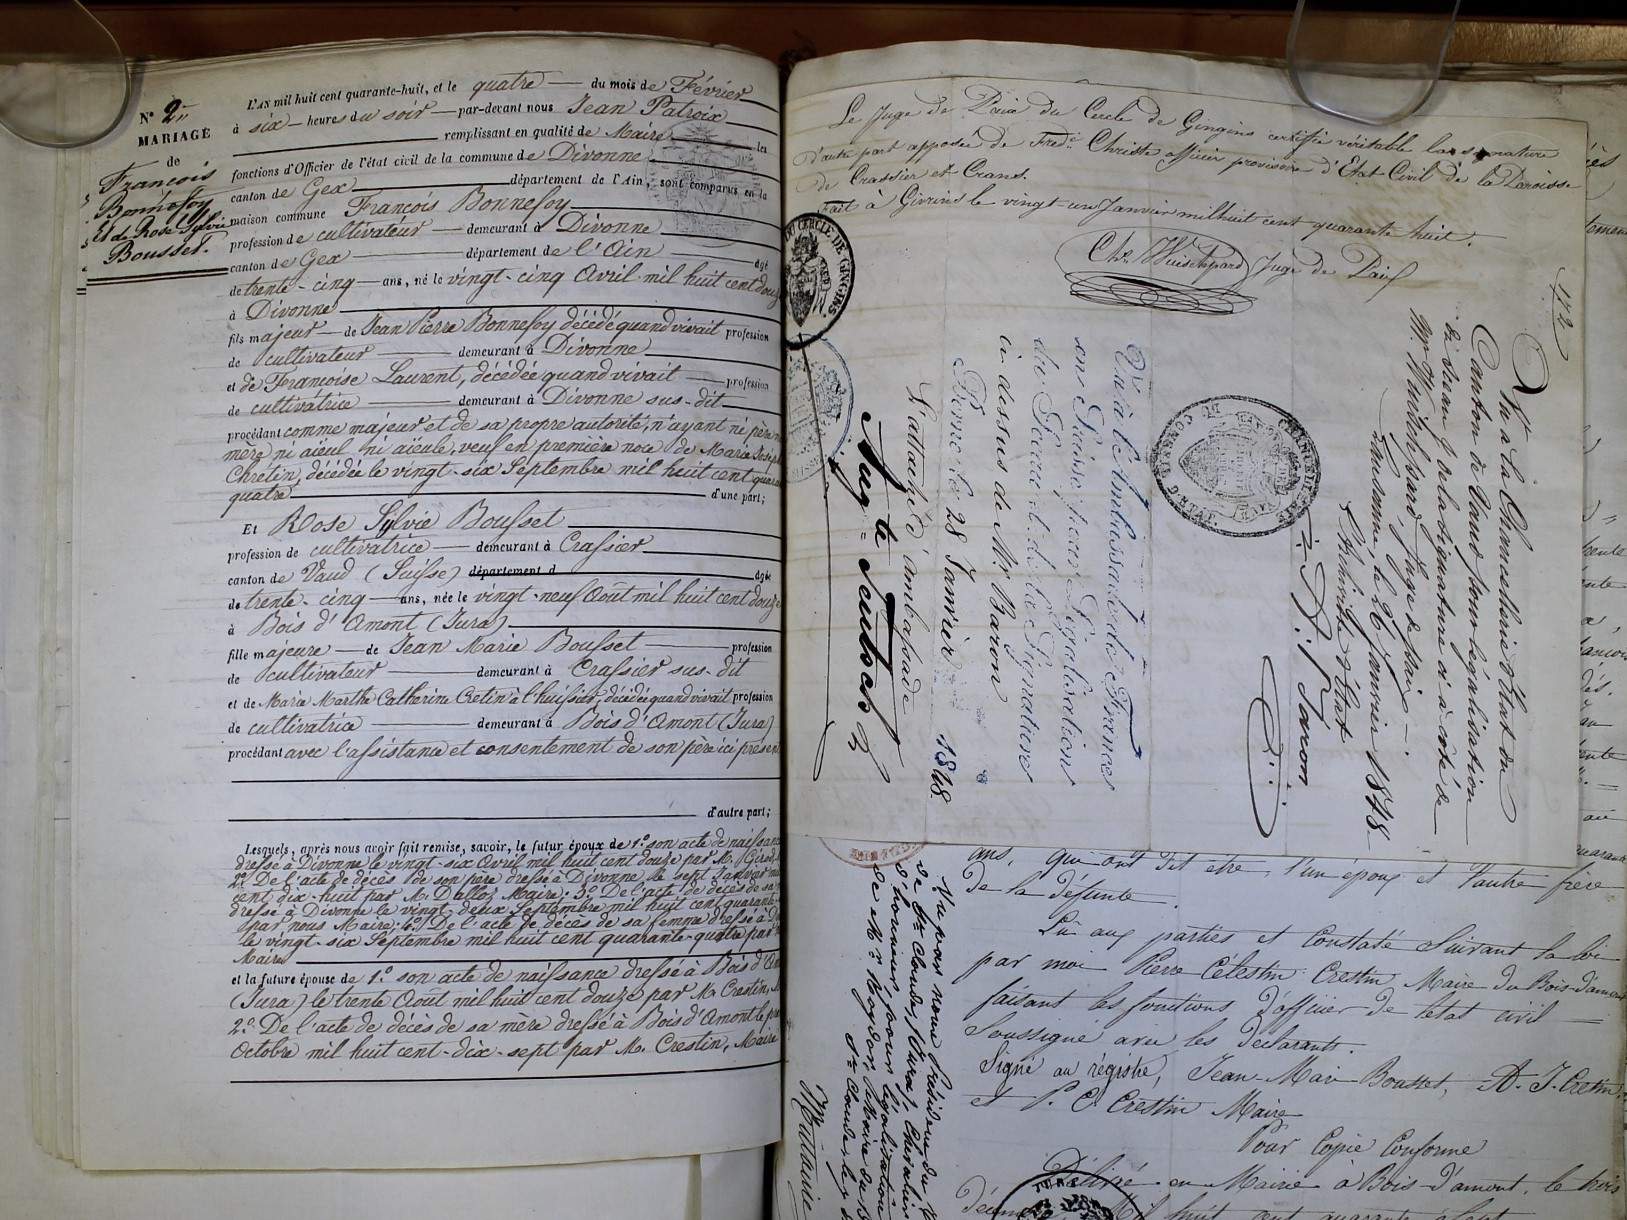 N° 2
MARIAGE
de
François
Bonnefoy
et de Rose Sylvie
Bousset.
L'AN mil huit cent quarante-huit, et le quatre du mois de Février
à six heures du soir par-devant nous Jean Patroix
remplissant en qualité de Maire les
fonctions d'Officier de l'état civil de la commune de Divonne
canton de Gex département de l'Ain, sont comparus en la
maison commune François Bonnefoy
profession de cultivateur demeurant à Divonne
canton de Gex département de l'Ain agé
de trente-cinq ans, né le vingt-cinq Avril mil huit cent douze
à Divonne
fils majeur de Jean Pierre Bonnefoy décédé quand vivait profession
de cultivateur demeurant à Divonne
et de Françoise Laurent, décédée quand vivait profession
de cultivatrice demeurant à Divonne sus-dit
procédant comme majeur et de sa propre autorité, n'ayant ni père ni
mère ni aïeul ni aïeule, veuf en première noce de Marie
Chretin, décédée le vingt-six Septembre mil huit cent quarante
quatre d'une part;
Et Rose Sylvie Bousset
profession de cultivatrice demeurant à Crassier
canton de Vaud (Suisse) département d agée
de trente-cinq ans, née le vingt-neuf Août mil huit cent douze
à Bois d'Amont (Jura)
fille majeure de Jean Marie Bousset profession
de cultivateur demeurant à Crassier sus-dit
et de Marie Marthe Catherine Cretin à l'huissier, décédée quand vivait profession
de cultivatrice demeurant à Bois d'Amont (Jura)
procédant avec l'assistance et consentement de son père ici présent
d'autre part;
Lesquels, après nous avoir fait remise, savoir, le futur époux de 1° son acte de naissance
dressé à Divonne le vingt-six Avril mil huit cent douze par M. Girod
2° De l'acte de décès de son père dressé à Divonne le sept Janvier mil
cent dix-huit par M. Dallos Maire; 3° De l'acte de décès de sa
dressé à Divonne le vingt-deux Septembre mil huit cent quarante
par nous Maire; 4° De l'acte de décès de sa femme dressé à
le vingt-six Septembre mil huit cent quarante-quatre par
Maire
et la future épouse de 1° son acte de naissance dressé à Bois d'Amont
(Jura) le trente Août mil huit cent douze par M. Crestin,
2° De l'acte de décès de sa mère dressé à Bois d'Amont le
Octobre mil huit cent-dix-sept par M. Crestin, Maire
Le Juge de Paix du Cercle de Gingins certifie véritable la signature
d'autre part apposée de Fred. Christe officier provisoire d'Etat Civil de la Paroisse
de Crassier et Crans.
Fait à Givrins le vingt un Janvier mil huit cent quarante huit.
Juge de Paix
DU CERCLE DE GINGINS
172
Vu à la Chancellerie d'Etat du
Canton de Vaud pour légalisation
du sceau & de la signature ci à côté de
Mr Juge de paix
Lausanne le 26 Janvier 1848
CHANCELLERIE
Vu à l'Ambassade de France
en Suisse pour Légalisation
du Sceau et de la Signature
ci dessus de Mr Baron
Berne le 28 Janvier 1848.
L'attaché d'ambassade
ans, qui ont dit etre, l'un époux et l'autre frère
De la défunte.
Lu aux parties et Constaté Suivant la loi
par moi Pierre Célestin Crestin Maire du Bois-d'amont
faisant les fonctions d'officier de l'état civil
Soussigné avec les déclarants.
Signé au régistre, Jean-Marie Bousset, A. J. Cretin
et P. C. Crestin Maire
Pour Copie Conforme
Délivré en Mairie à Bois-d'amont, le trois
mil huit cent quarante sept
Vu par nous Président du
de St. Claude, (Jura), Chevalier
d'honneur, pour légalisation
de Mr. Maire du
St. Claude, le